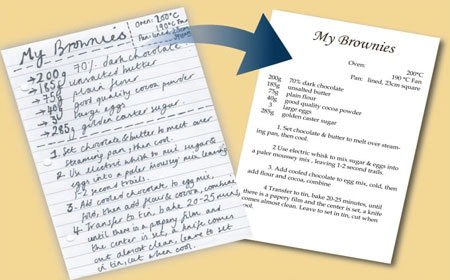 My Brownies
Oven: 200°C
190°C Fan
Pan: lined, 23cm
square
→ 200g 70% dark chocolate
→ 185g unsalted butter
→ 75g plain flour
→ 40g good quality cocoa powder
→ 3 large eggs
→ 285g golden caster sugar
1. Set chocolate & butter to melt over
steaming pan, then cool.
2. Use electric whisk to mix sugar &
eggs into a paler mousey mix, leaving
1-2 second trails.
3. Add cooled chocolate to egg mix,
fold, then add flour & cocoa, combine
4. Transfer to tin, bake 20-25 mins,
until there is a papery film and
the center is set, a knife comes
out almost clean, leave to set
in tin, cut when cool.
My Brownies
Oven: 200°C
190 °C Fan
Pan: lined, 23cm square
200g 70% dark chocolate
185g unsalted butter
75g plain flour
40g good quality cocoa powder
3 large eggs
285g golden caster sugar
1. Set chocolate & butter to melt over steam-
ing pan, then cool.
2 Use electric whisk to mix sugar & eggs into
a paler moussey mix , leaving 1-2 second trails.
3. Add cooled chocolate to egg mix, cold, then
add flour and cocoa, combine
4 Transfer to tin, bake 20-25 minutes, until
there is a papery film and the center is set, a knife
comes almost clean. Leave to set in tin, cut when
cool.